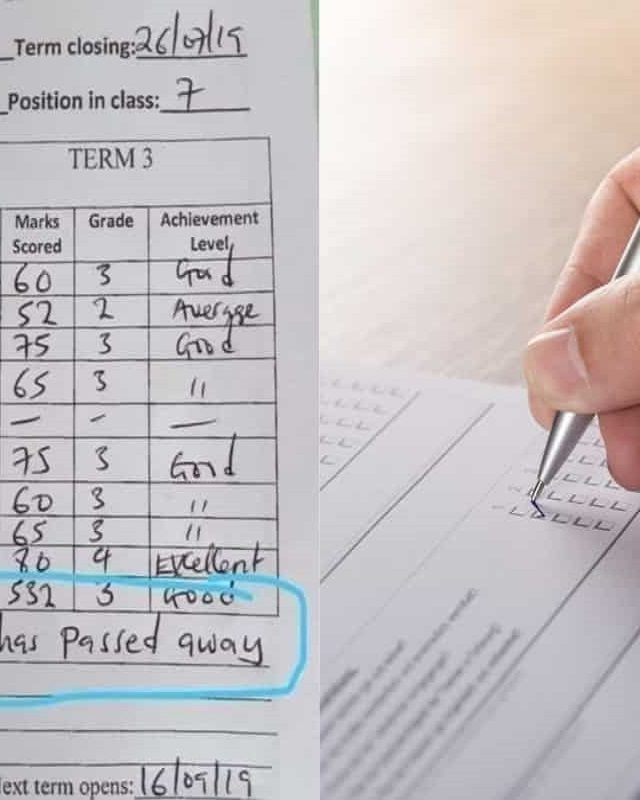 Term closing: 26/07/19
Position in class: 7
TERM 3
Marks Scored Grade Achievement Level
60 3 Good
52 2 Average
75 3 Good
65 3 "
— - —
75 3 Good
60 3 "
65 3 "
80 4 Excellent
532 3 Good
has passed away
ext term opens: 16/09/19